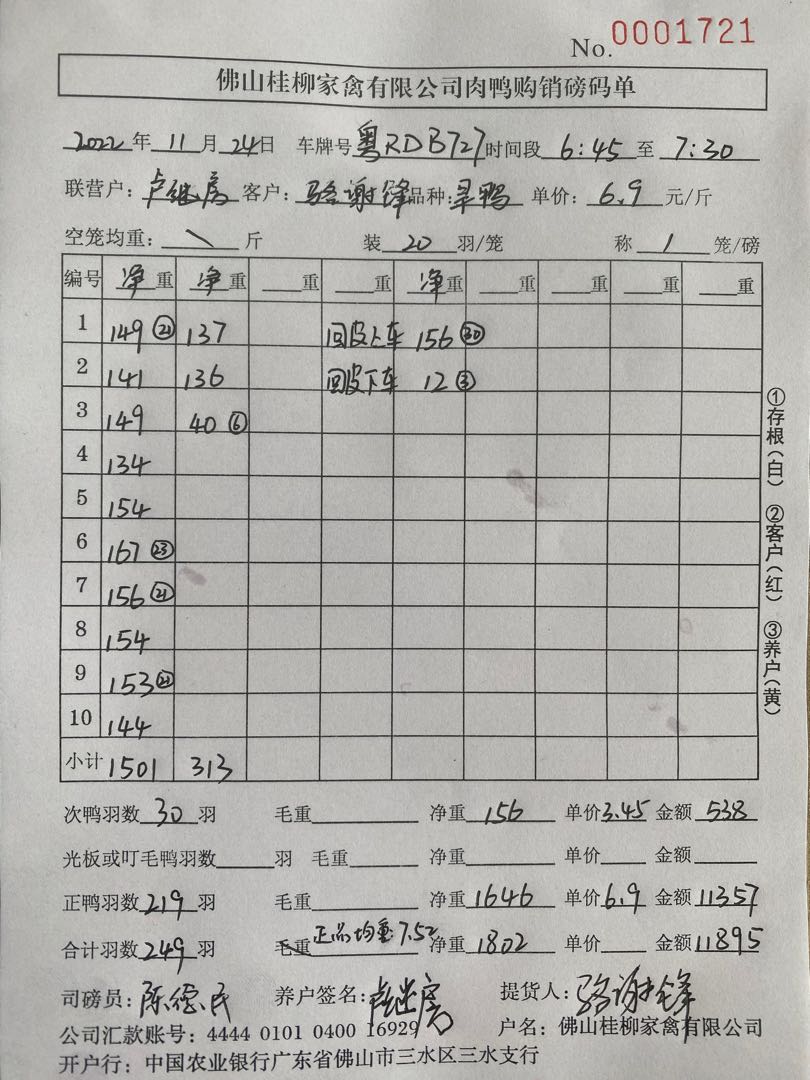 No. 0001721
佛山桂柳家禽有限公司肉鸭购销磅码单
2022年 11月 24日 车牌号粤RDB727时间段 6:45 至 7:30
联营户: 卢继房 客户: 骆谢锋 品种: 旱鸭 单价: 6.9 元/斤
空笼均重: \ 斤 装 20 羽/笼 称 1 笼/磅
编号 净重 净重 重 重 净重 重 重 重 重
1 149 ㉑ 137 回皮上车 156 ㉚
2 141 136 回皮下车 12 ③
3 149 40 ⑥
4 134
5 154
6 167 ㉓
7 156 ㉑
8 154
9 153 ㉒
10 144
小计 1501 313
次鸭羽数 30 羽 毛重 净重 156 单价 3.45 金额 538
光板或叮毛鸭羽数 羽 毛重 净重 单价 金额
正鸭羽数 219 羽 毛重 净重 1646 单价 6.9 金额 11357
合计羽数 249 羽 毛重 正品均重 7.52 净重 1802 单价 金额 11895
司磅员: 陈德民 养户签名: 卢继房 提货人: 骆谢锋
公司汇款账号: 4444 0101 0400 16929 户名: 佛山桂柳家禽有限公司
开户行: 中国农业银行广东省佛山市三水区三水支行
①存根(白) ②客户(红) ③养户(黄)